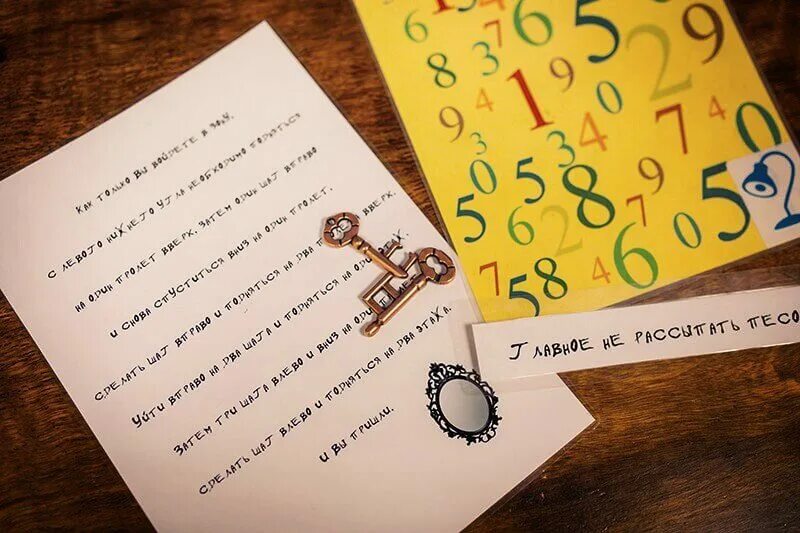 Как только Вы войдете в
с левого нижнего угла необходимо подняться
на один пролет вверх. Затем один шаг вправо
и снова спуститься вниз на один пролет.
Сделать шаг вправо и подняться на два вверх.
Уйти вправо на два шага и подняться на
Затем три шага влево и вниз на
Сделать шаг влево и подняться на два этажа.
и Вы пришли.
6 6 5 9
8 3 7 2
4 1 9 0
9 3 4 7 4
0 5 3 8 9 0
5 6 2 7 0 5
7 5 8 4 6
Главное не рассыпать песо